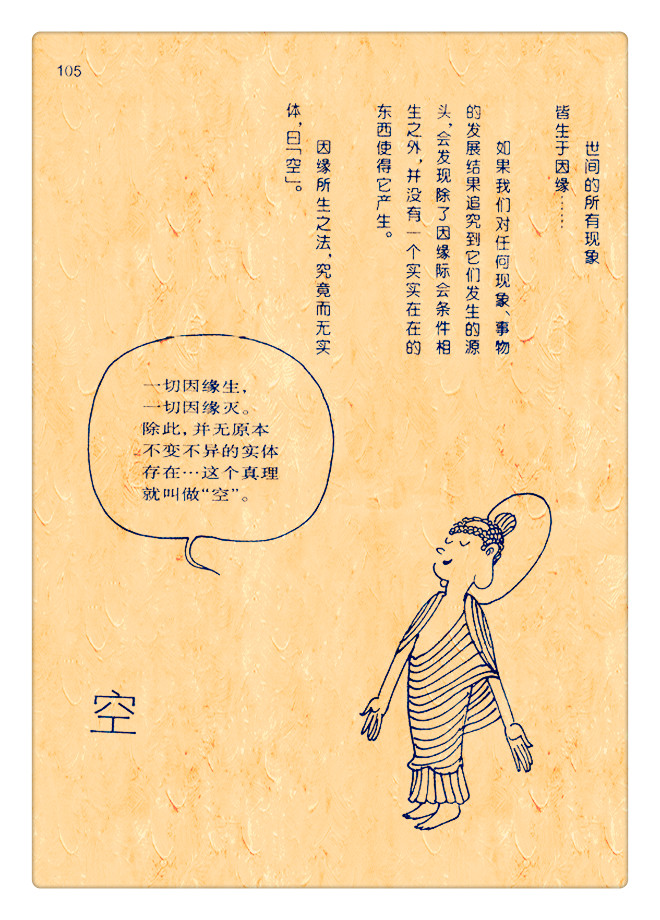 105
世间的所有现象
皆生于因缘……
如果我们对任何现象、事物
的发展结果追究到它们发生的源
头,会发现除了因缘际会条件相
生之外,并没有一个实实在在的
东西使得它产生。
因缘所生之法,究竟而无实
体,曰「空」。
一切因缘生,
一切因缘灭。
除此,并无原本
不变不异的实体
存在…这个真理
就叫做“空”。
空